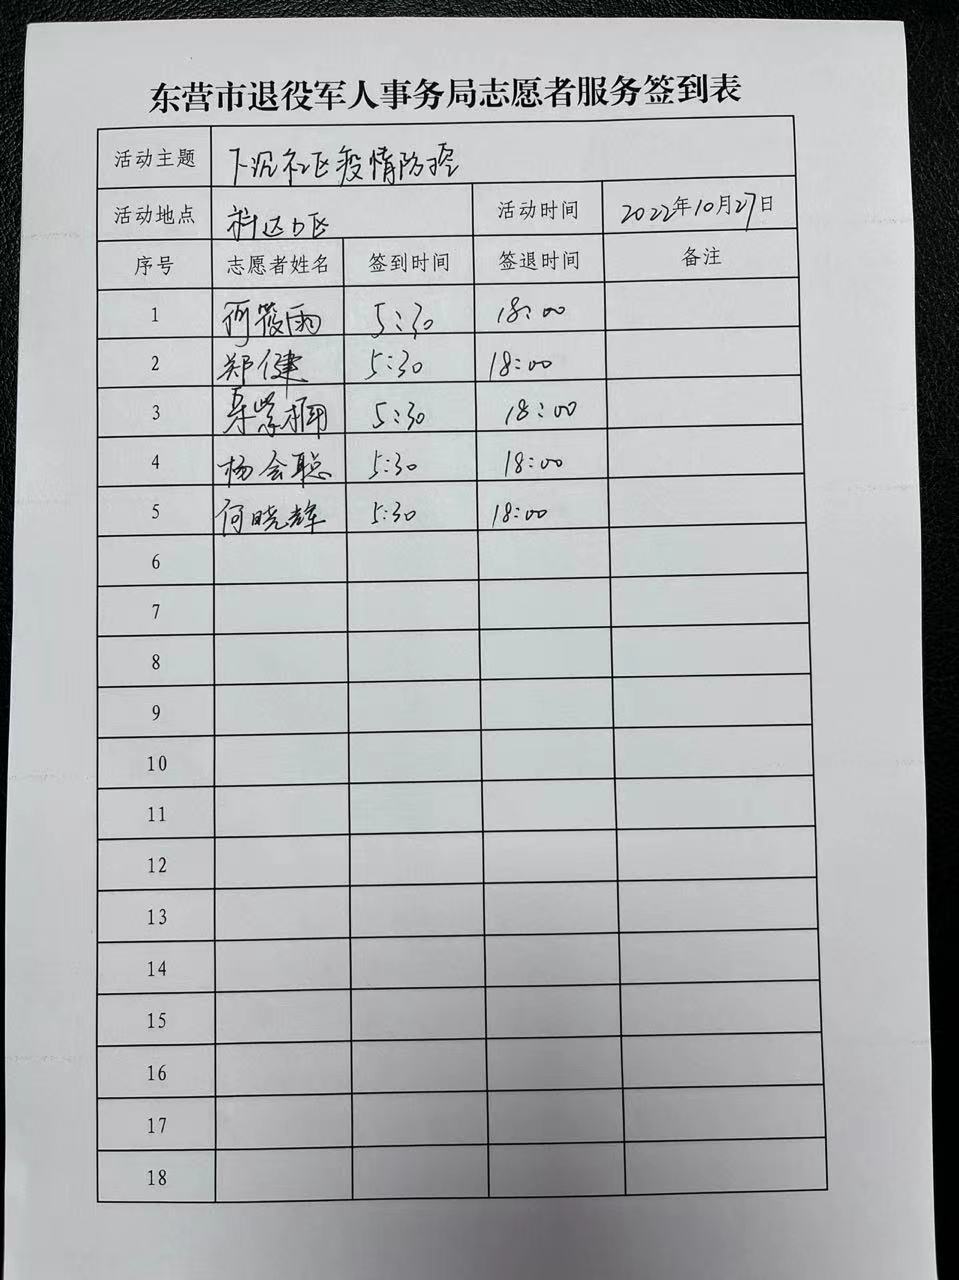 东营市退役军人事务局志愿者服务签到表
活动主题 下沉社区疫情防控
活动地点 科达小区 活动时间 2022年10月27日
序号 志愿者姓名 签到时间 签退时间 备注
1 筱雨 5:30 18:00
2 郑健 5:30 18:00
3 5:30 18:00
4 杨会聪 5:30 18:00
5 何晓辉 5:30 18:00
6
7
8
9
10
11
12
13
14
15
16
17
18